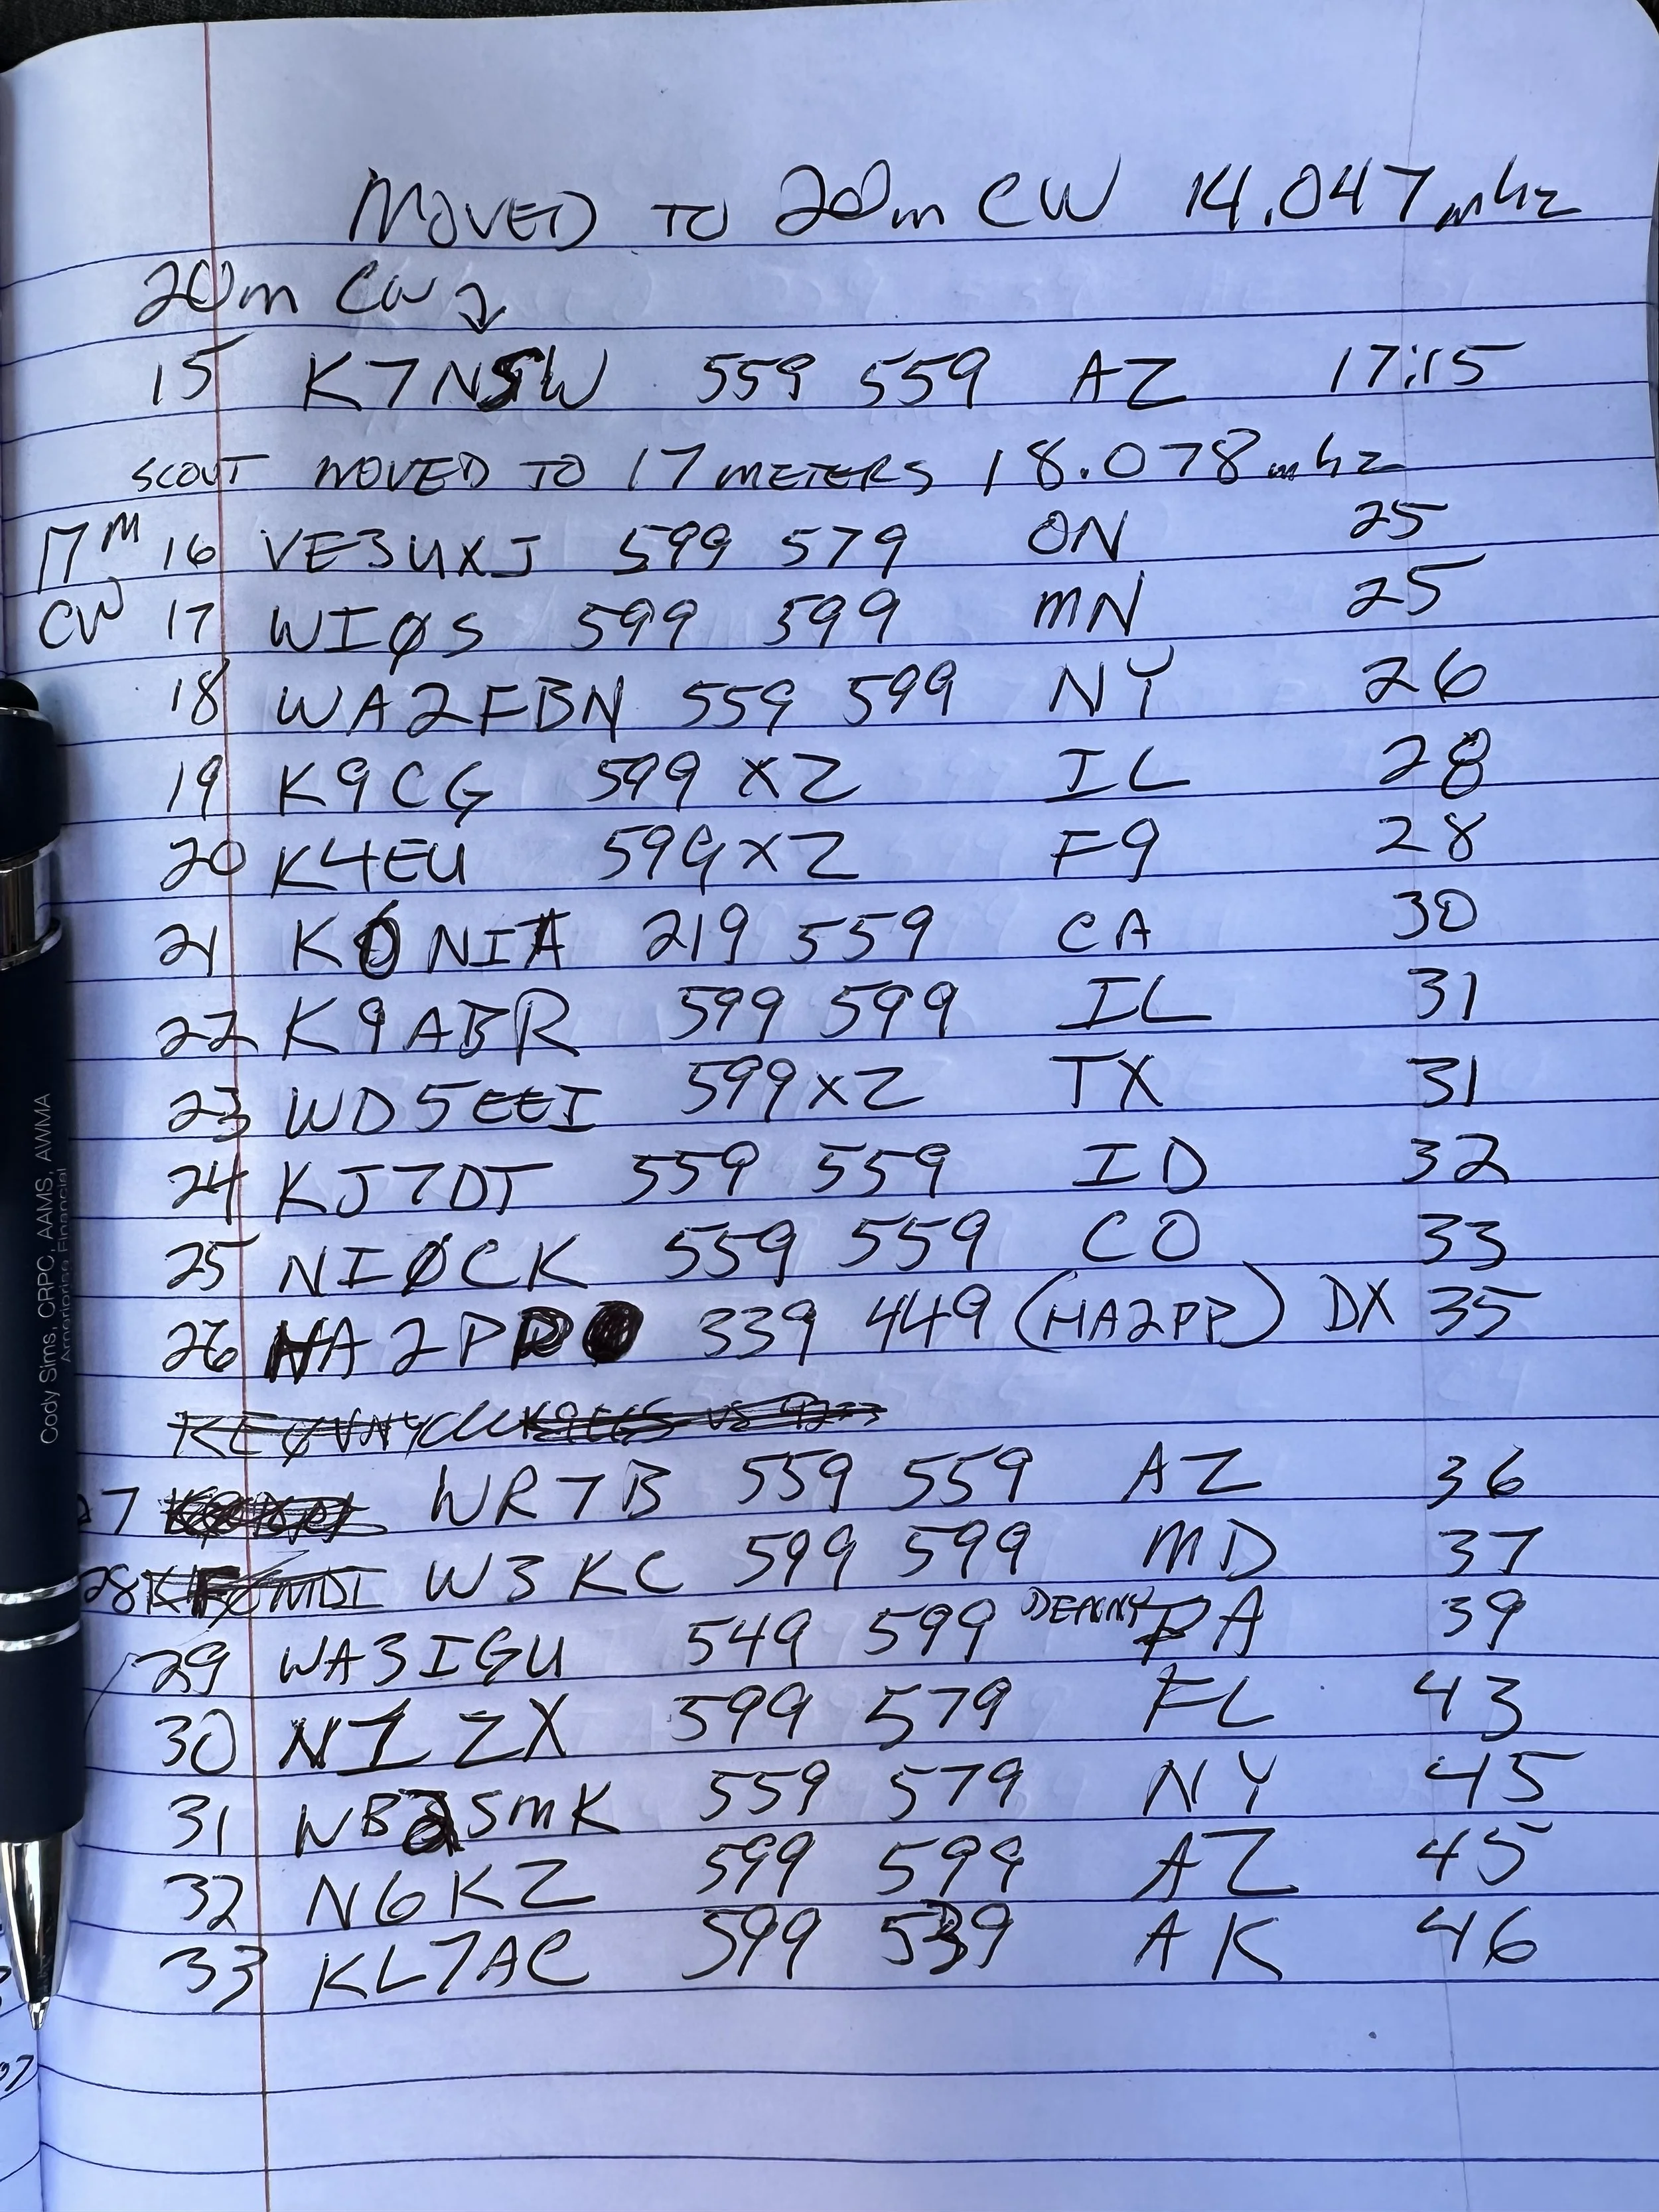 MOVED TO 20m CW 14.047 mhz
20m CW
15 K7NSW 559 559 AZ 17:15
SCOUT MOVED TO 17 METERS 18.078 mhz
17M 16 VE3UXJ 599 579 ON 25
CW 17 WIØS 599 599 MN 25
18 WA2FBN 559 599 NY 26
19 K9CG 599 X2 IL 28
20 K4EU 599 X2 F9 28
21 K6NIA 219 559 CA 30
22 K9ABR 599 599 IL 31
23 WD5EEI 599 X2 TX 31
24 KJ7DT 559 559 ID 32
25 NIØCK 559 559 CO 33
26 HA2PP 339 449 (HA2PP) DX 35
27 WR7B 559 559 AZ 36
28 W3KC 599 599 MD 37
29 WA3IGU 549 599 DENNY PA 39
30 N1ZX 599 579 FL 43
31 WB2SMK 559 579 NY 45
32 N6KZ 599 599 AZ 45
33 KL7AC 599 539 AK 46
Cody Sims, CRPC, AAMS, AWMA
Ameriprise Financial